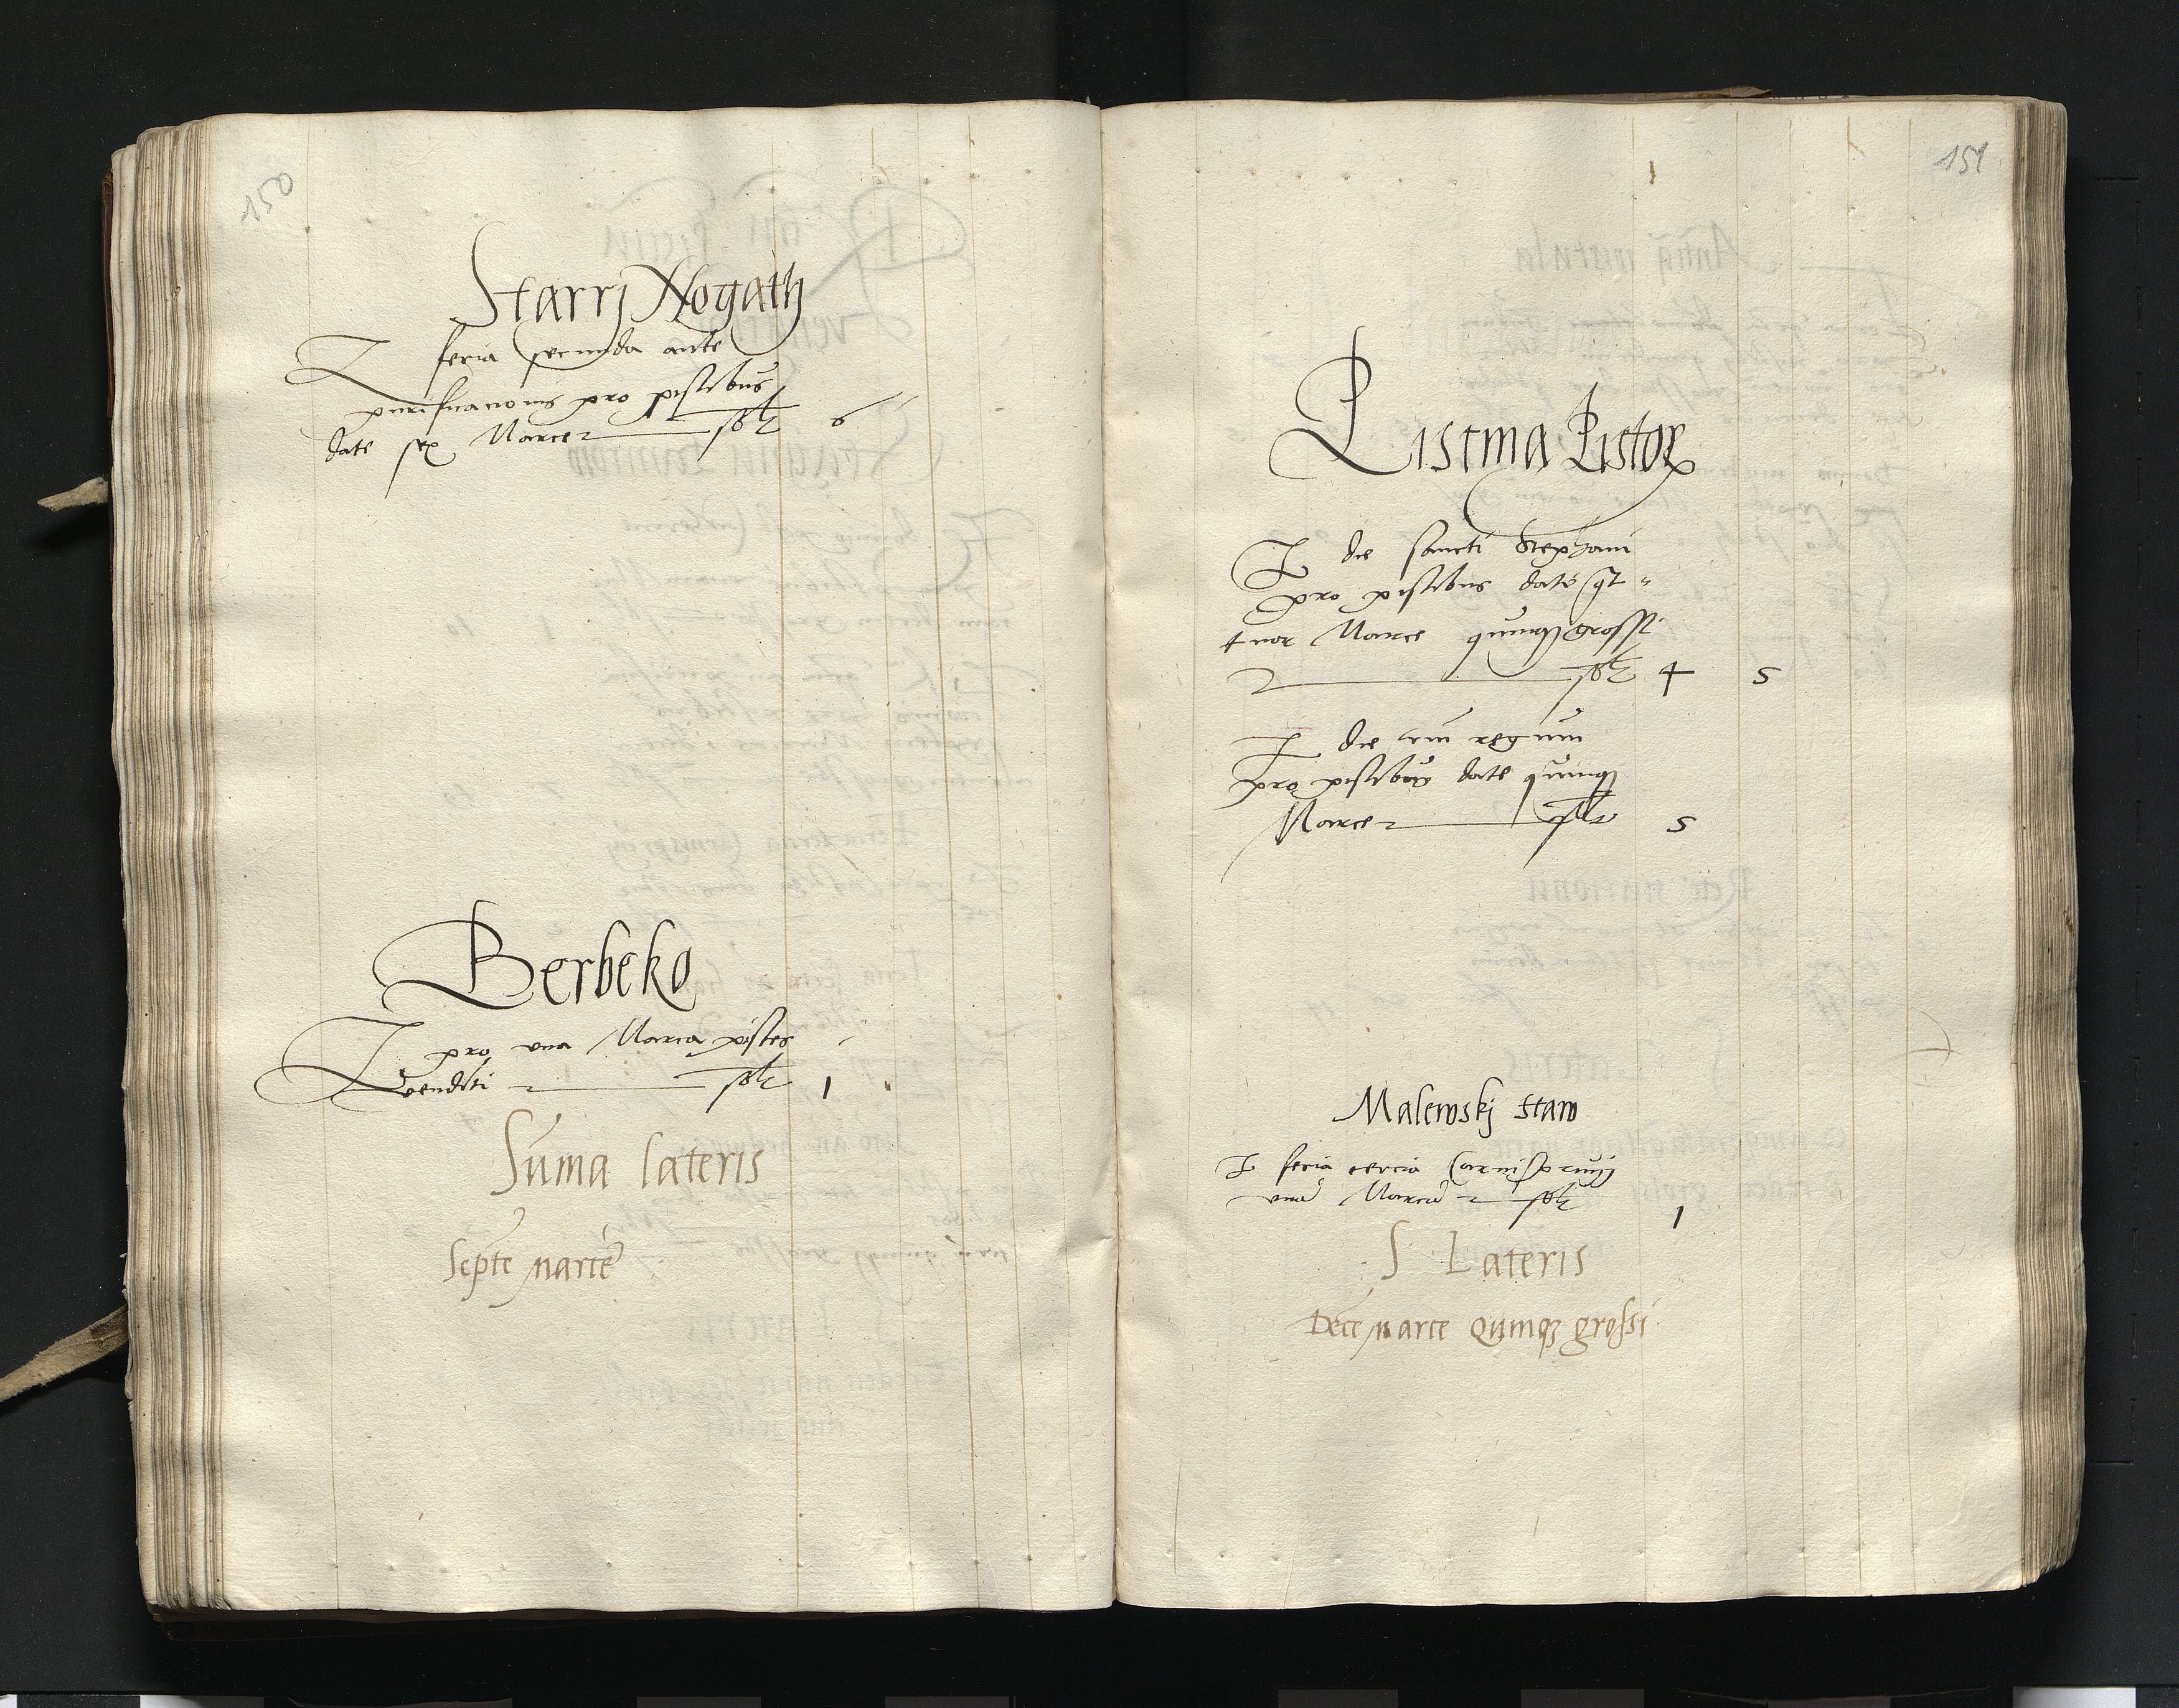 150
Starrj Nogath
I feria secunda ante
purificacionis pro piscibus
date sex Marce solt 6
Berbeko
I pro una Marca pisces
venditi solt 1
Suma lateris
Septe marce
151
Pistor
I die sancti Stephani
pro piscibus date qt
tuor Marce quinqȝ grossi
solt 4 5
I die trium regum
pro piscibus date quinqȝ
Marce solt 5
Malewskj staw
I feria tercia Carnispriuij
una Marca solt
1
S Lateris
Dece marce Quinqȝ grossi